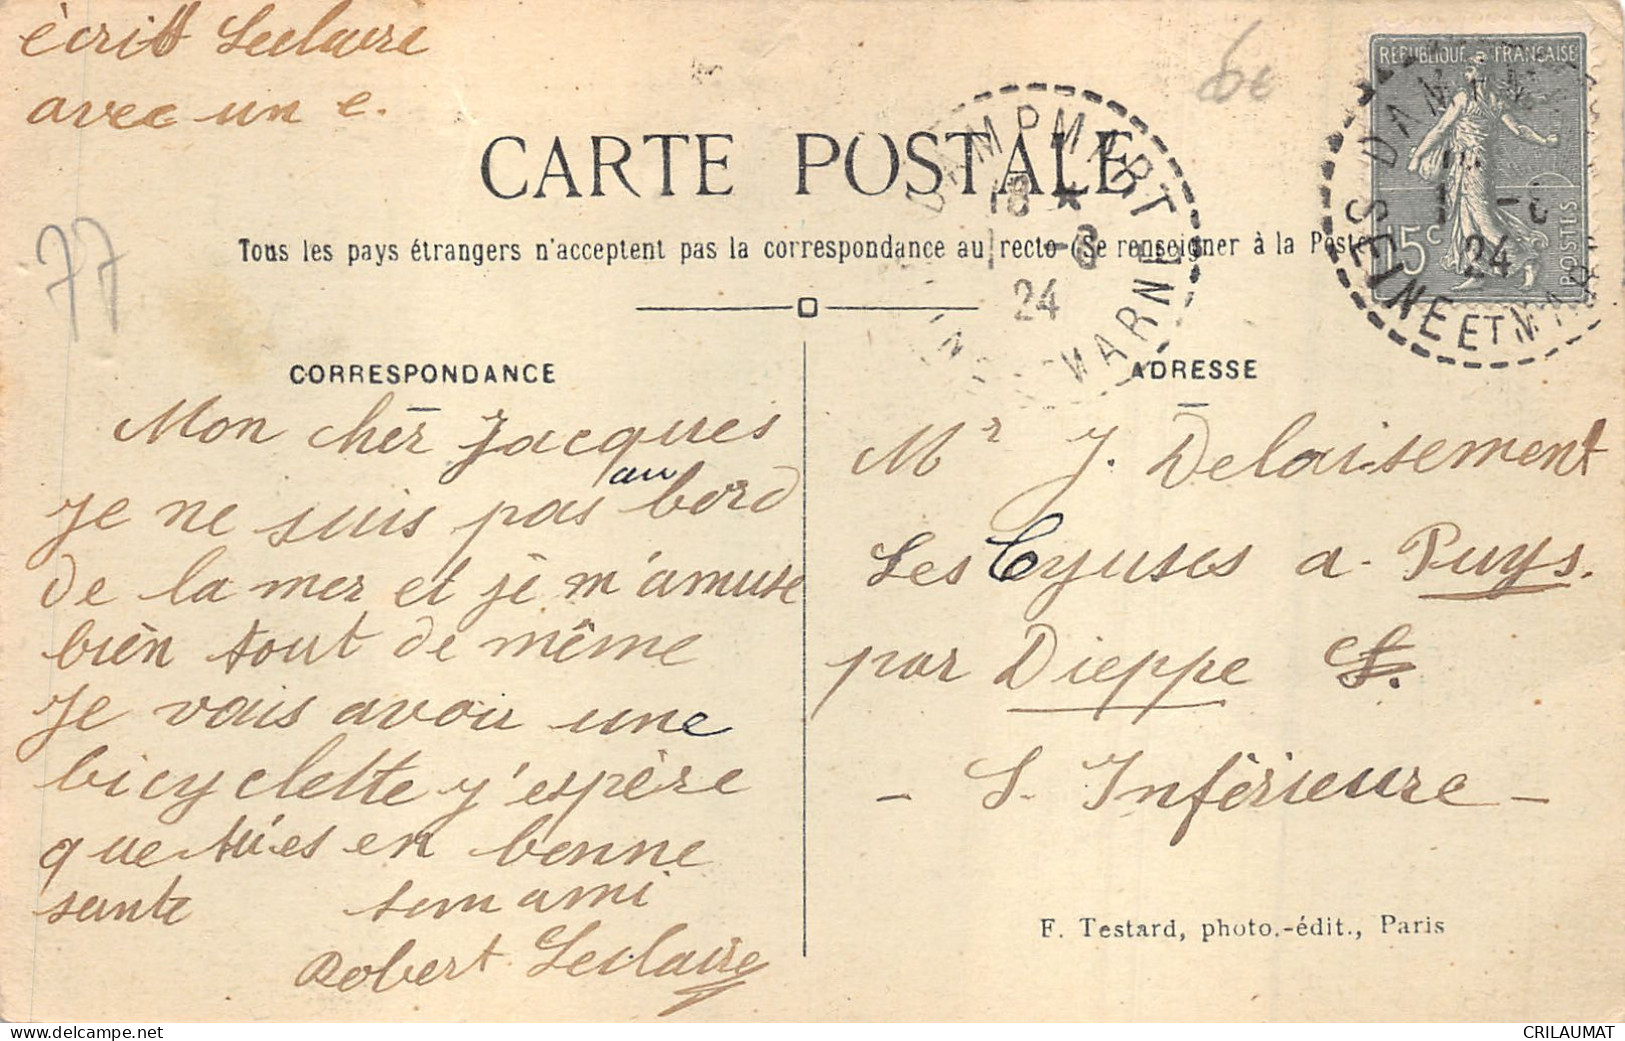 écrit Leclaire
avec un e.
6e
REPUBLIQUE FRANÇAISE
15c
POSTES
CARTE POSTALE
DAMPMART
18 *
1 -8
24
MARNE
DAMPMAR
SEINE ET MAR
24
77
Tous les pays étrangers n'acceptent pas la correspondance au recto (Se renseigner à la Poste
CORRESPONDANCE
Mon cher Jacques
Je ne suis pas au bord
de la mer et je m'amuse
bien tout de même
Je vais avoir une
bicyclette j'espère
que tu es en bonne
sante ton ami
Robert Leclaire
ADRESSE
Mr J. Delaisement
Les Cyuses a. Puys.
par Dieppe
- S. Inférieure -
F. Testard, photo.-édit., Paris
CRILAUMAT
www.delcampe.net